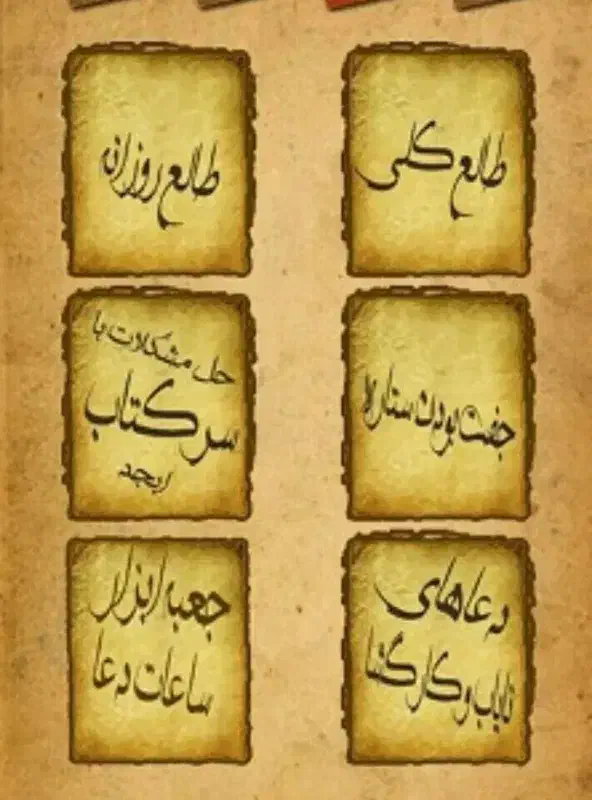 طالع کلی
طالع روزانه
جفت بودن ستاره
حل مشکلات با
سر کتاب
ابجد
دعاهای
نایاب و کارگشا
جعبه ابزار
ساعات دعا